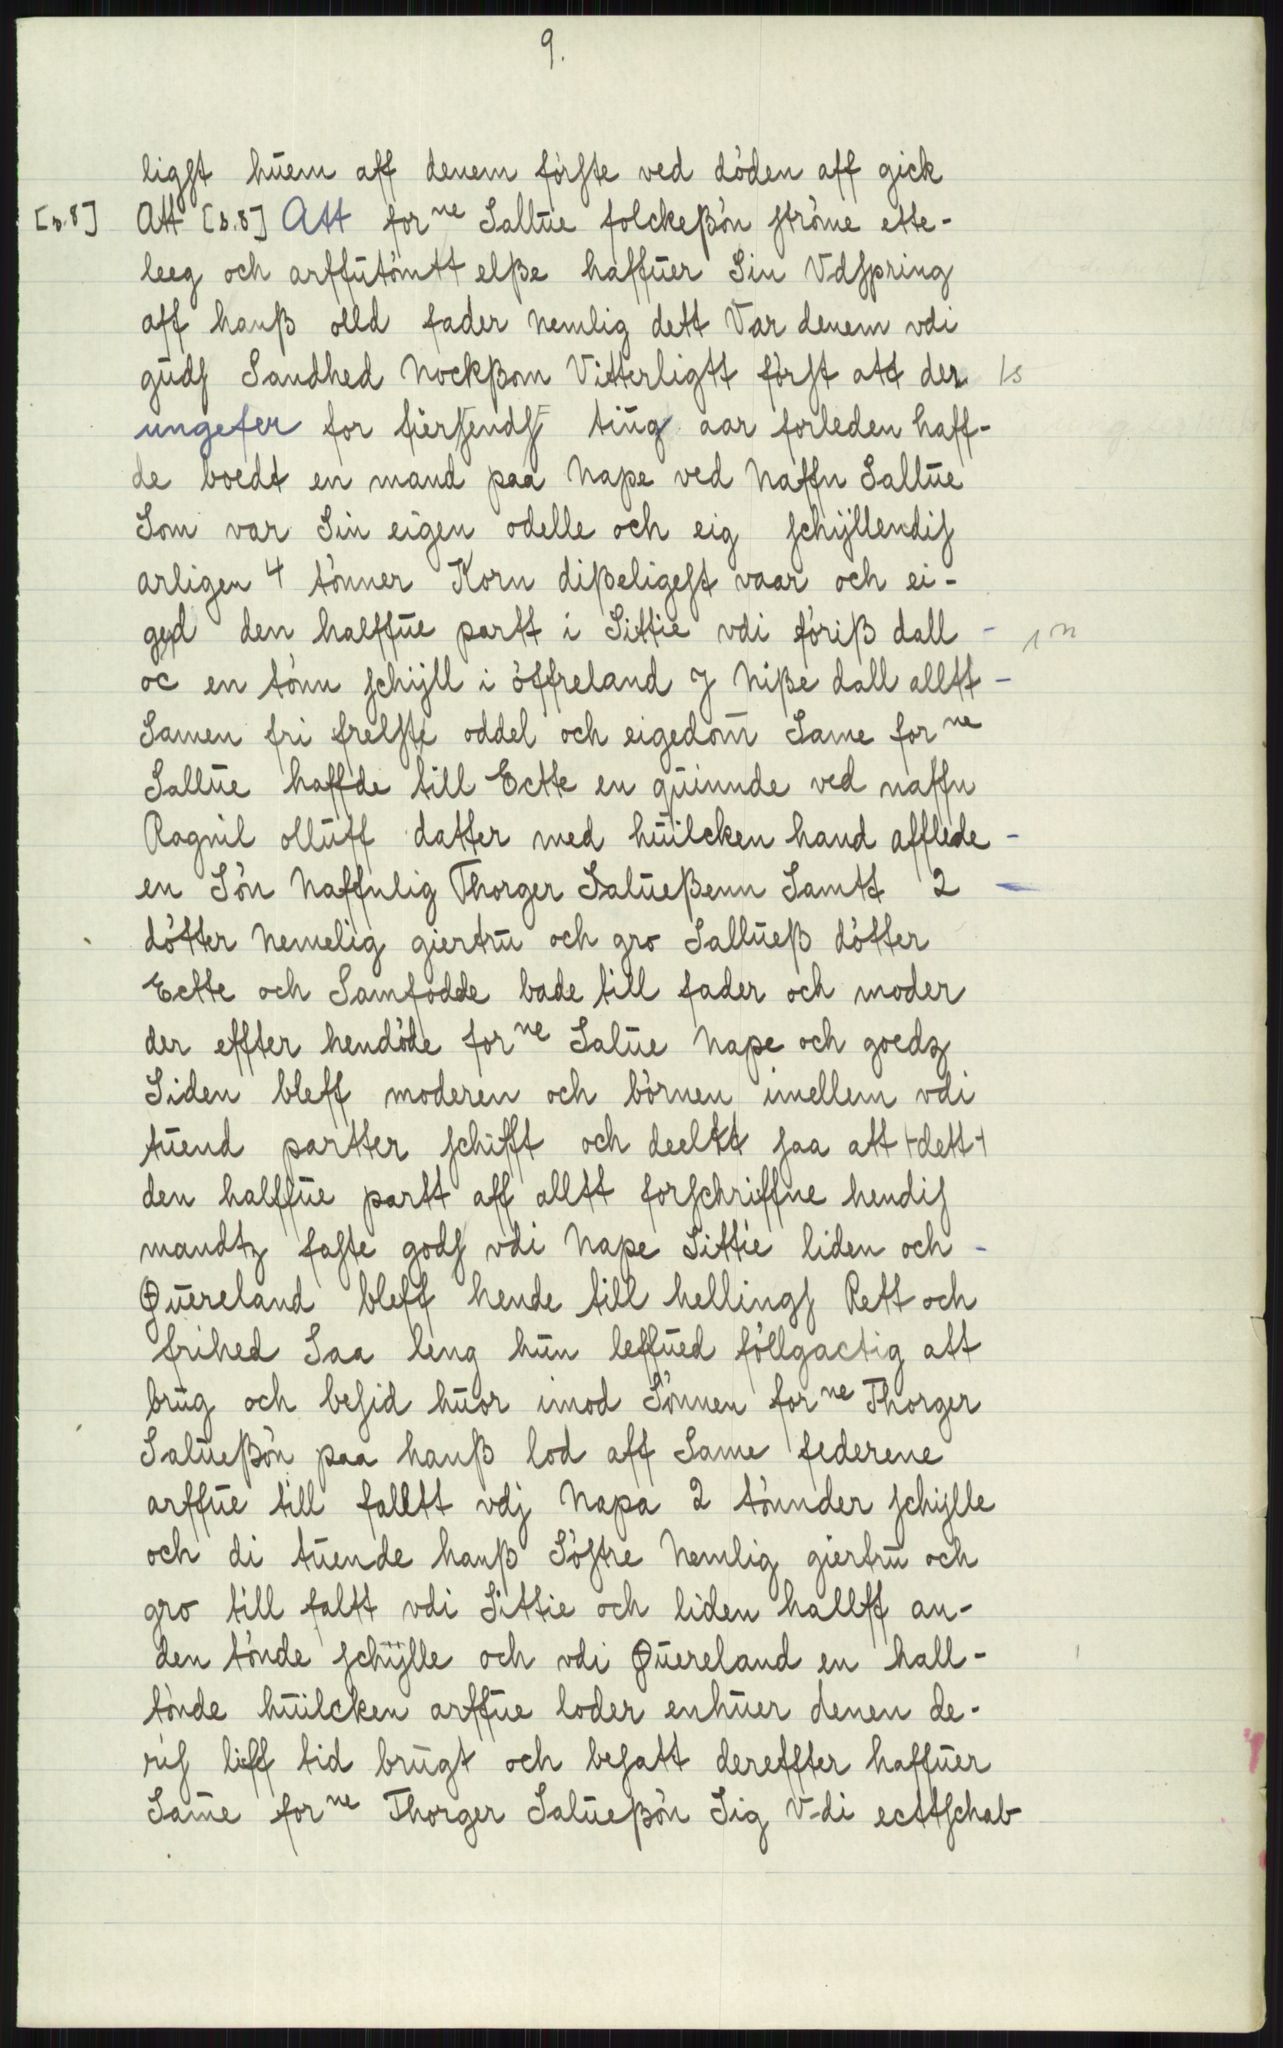 9.
ligst huem aff denem første ved døden aff gick
[s.8] Att [s.8] Att forne Sallue folckeßøn strøme ette-
leeg och arffutømtt elße haffuer Sin Vdspring
aff hanß olld fader Nemlig dett Var denem vdi
guds Sandhed Nockßom Vitterligtt først att der
ungefer for fiersendstiug aar forleden haff-
de boedt en mand paa Nape ved Naffn Sallue
Som var Sin eigen odelle och eig schÿllendis
arligen 4 tønner Korn dißeligest vaar och ei-
ged den halffue partt i Sittie vdi føriß dall -
oc en tønn schÿll i øffreland J Niße dall alltt -
Samen fri frelste oddel och eigedom̄ Same forne
Sallue haffde till Ectte en quinnde ved naffn
Ragnil olluff datter med huilcken hand afflede -
en Søn Naffnlig Thorger Salueßenn Samtt 2 -
døtter Nemelig giertru och gro Sallueß døtter
Ectte och Samfødde bade till fader och moder
der effter hendøde forne Salue Nape och goedz
Siden bleff moderen och børnen imellem vdi
tuend partter schifft och deeltt saa att +dett+
den halffue partt aff alltt forschriffne hendis
mandtz faste gods vdi Nape Sittie liden och -
Quereland bleff hende till hellings Rett och
frihed Saa leng hun leffued føllgactig att
brug och besid huor imod Sønnen forne Thorger
Salueßøn paa hanß lod aff Same federene
arffue till falltt vdj Napa 2 tønnder schÿlle
och di tuende hanß Søstre Nemlig giertru och
gro till faltt vdi Sittie och liden hallff an-
den tønde schÿlle och vdi Quereland en hall-
tønde huilcken arffue loder enhuer denen de-
ris liff tid brugt och besatt dereffter haffuer
Sam̄e forne Thorger Salueßøn Sig V-di ecttschab